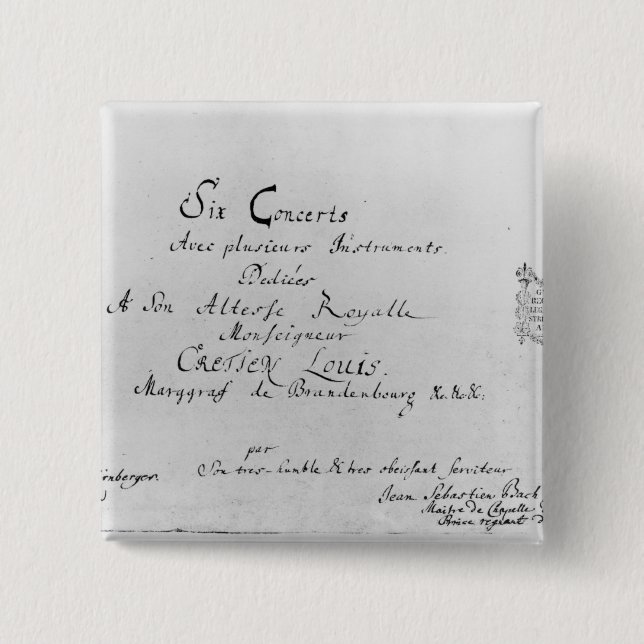 Six Concerts
Avec plusieurs Instruments.
Dediées
A Son Altesse Royalle
Monseigneur
CRETIEN LOUIS.
Marggraf de Brandenbourg &c. &c. &c:
par
Son tres-humble & tres obeissant serviteur
rnberger.
Jean Sebastien Bach
Maitre de Chapelle
Prince regnant d